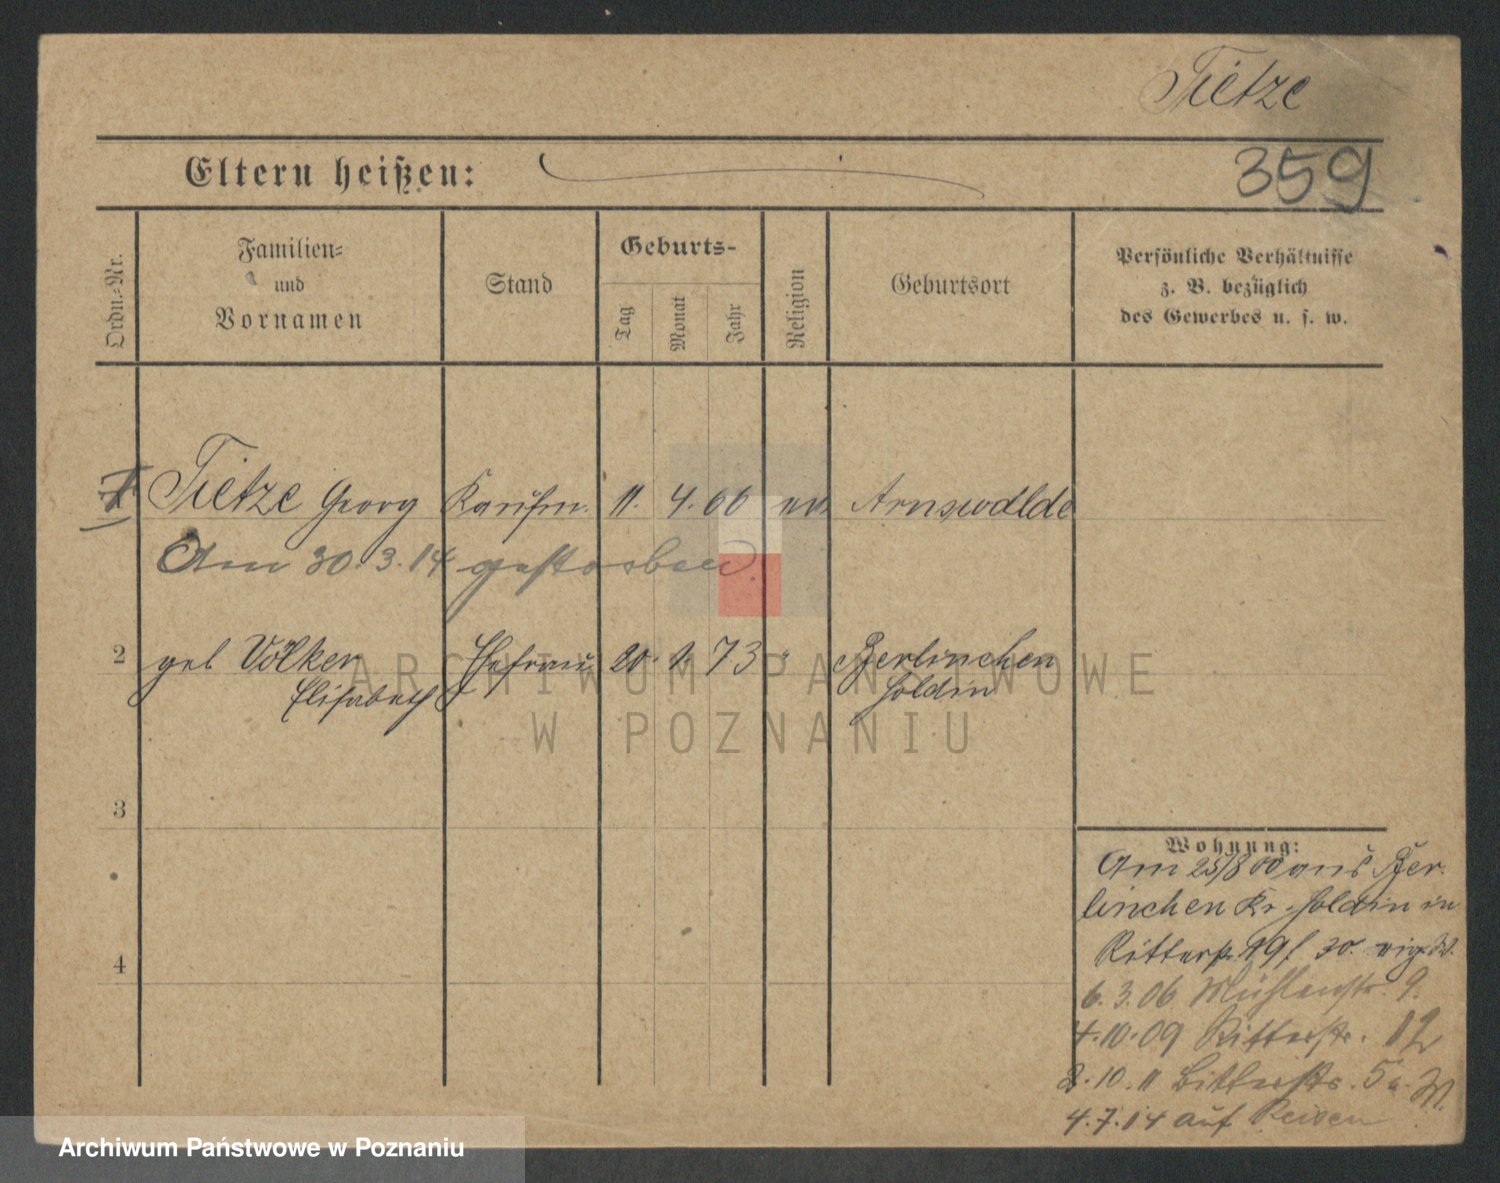 Tietze
359
Eltern heißen:
Ordn.=Nr.
Familien=
und
Vornamen
Stand
Geburts-
Tag
Monat
Jahr
Religion
Geburtsort
Persönliche Verhältnisse
z. B. bezüglich
des Gewerbes u. s. w.
Tietze Georg Kaufm. 11. 4. 66 ev. Arnswalde
Am 30.3.14 gestorben.
2 geb Völker Ehefrau 20. 1. 73 " Berlinchen
Elisabeth Soldin
ARCHIWUM PAŃSTWOWE
W POZNANIU
3
4
Wohnung:
Am 25/8 00 aus Ber-
linchen Kr. Soldin in
Ritterstr. 19 30.
6.3.06 Mühlenstr. 9.
4.10.09 Ritterstr. 12
2.10.11 Bitterstr. 5a. W.
4.7.14 auf Reisen
Archiwum Państwowe w Poznaniu